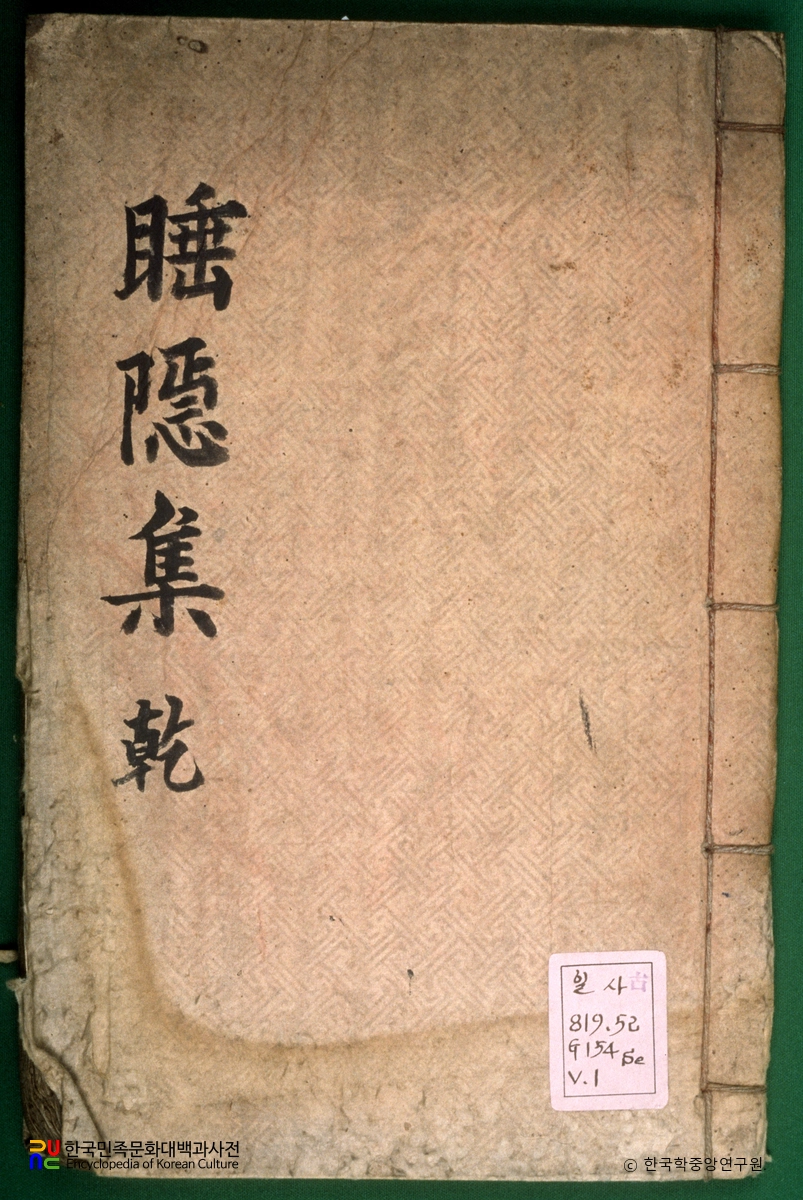 睡隱集 乾
일사 古
819.52
G154se
V.1
한국민족문화대백과사전
Encyclopedia of Korean Culture
© 한국학중앙연구원